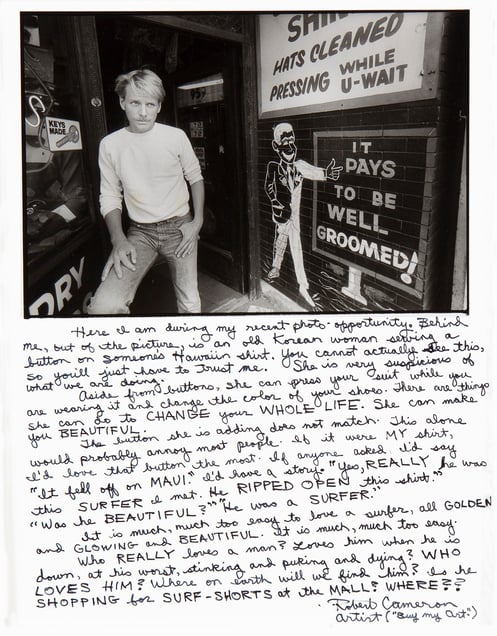 SHIN
HATS CLEANED
PRESSING WHILE
U-WAIT
KEYS
MADE
IT
PAYS
TO BE
WELL
GROOMED!
DRY
Here I am during my recent photo-opportunity. Behind
me, out of the picture, is an old Korean woman serving a
button on someone's Hawaiin shirt. You cannot actually see this,
so you'll just have to trust me. She is very suspicious of
what we are doing.
Aside from buttons, she can press your suit while you
are wearing it and change the color of your shoes. There are things
she can do to CHANGE your WHOLE LIFE. She can make
you BEAUTIFUL.
The button she is adding does not match. This alone
would probably annoy most people. If it were MY shirt,
I'd love that button the most. If anyone asked, I'd say
"It fell off on MAUI." I'd have a story. "Yes, REALLY he was
this SURFER I met. He RIPPED OPEN this shirt."
"Was he BEAUTIFUL?" "He was a SURFER."
It is much, much too easy to love a surfer, all GOLDEN
and GLOWING and BEAUTIFUL. It is much, much too easy.
Who REALLY loves a man? Loves him when he is
down, at his worst, stinking and puking and dying? WHO
LOVES HIM? Where on earth will we find him? Is he
SHOPPING for SURF-SHORTS at the MALL? WHERE??
Robert Cameron
Artist ("Buy my Art.")